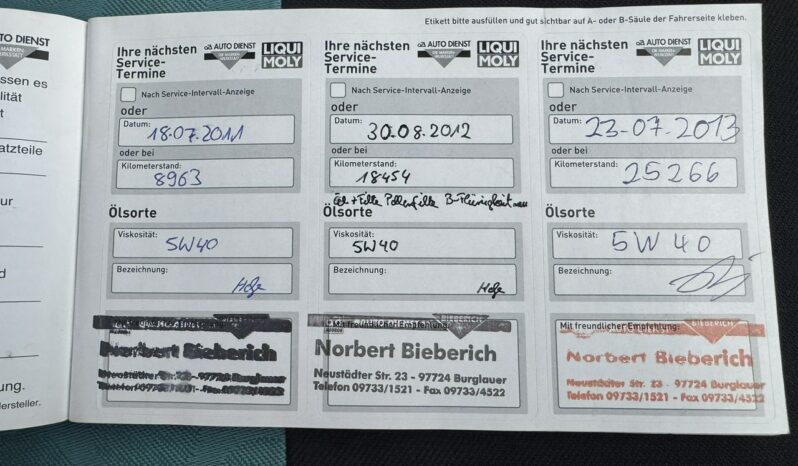 Etikett bitte ausfüllen und gut sichtbar auf A- oder B-Säule der Fahrerseite kleben.
AUTO DIENST
DIE MARKEN-
WERKSTATT
ssen es
lität
t
atzteile
ur
d
ung.
ersteller.
Ihre nächsten
Service-
Termine
AUTO DIENST
LIQUI
MOLY
Nach Service-Intervall-Anzeige
oder
Datum:
18.07.2011
oder bei
Kilometerstand:
8963
Ölsorte
Viskosität:
5W40
Bezeichnung:
Norbert Bieberich
Neustädter Str. 23 - 97724 Burglauer
Telefon 09733/1521 - Fax 09733/4522
Ihre nächsten
Service-
Termine
AUTO DIENST
LIQUI
MOLY
Nach Service-Intervall-Anzeige
oder
Datum:
30.08.2012
oder bei
Kilometerstand:
18454
Öl + Filter Pollenfilter B-Flüssigkeit neu
Ölsorte
Viskosität:
5W40
Bezeichnung:
Mit freundlicher Empfehlung:
BIEBERICH
Norbert Bieberich
Neustädter Str. 23 - 97724 Burglauer
Telefon 09733/1521 - Fax 09733/4522
Ihre nächsten
Service-
Termine
AUTO DIENST
DIE MARKEN-
WERKSTATT
LIQUI
MOLY
Nach Service-Intervall-Anzeige
oder
Datum:
23-07.2013
oder bei
Kilometerstand:
25266
Ölsorte
Viskosität:
5W40
Bezeichnung:
Mit freundlicher Empfehlung:
BIEBERICH
Norbert Bieberich
Neustädter Str. 23 - 97724 Burglauer
Telefon 09733/1521 - Fax 09733/4522